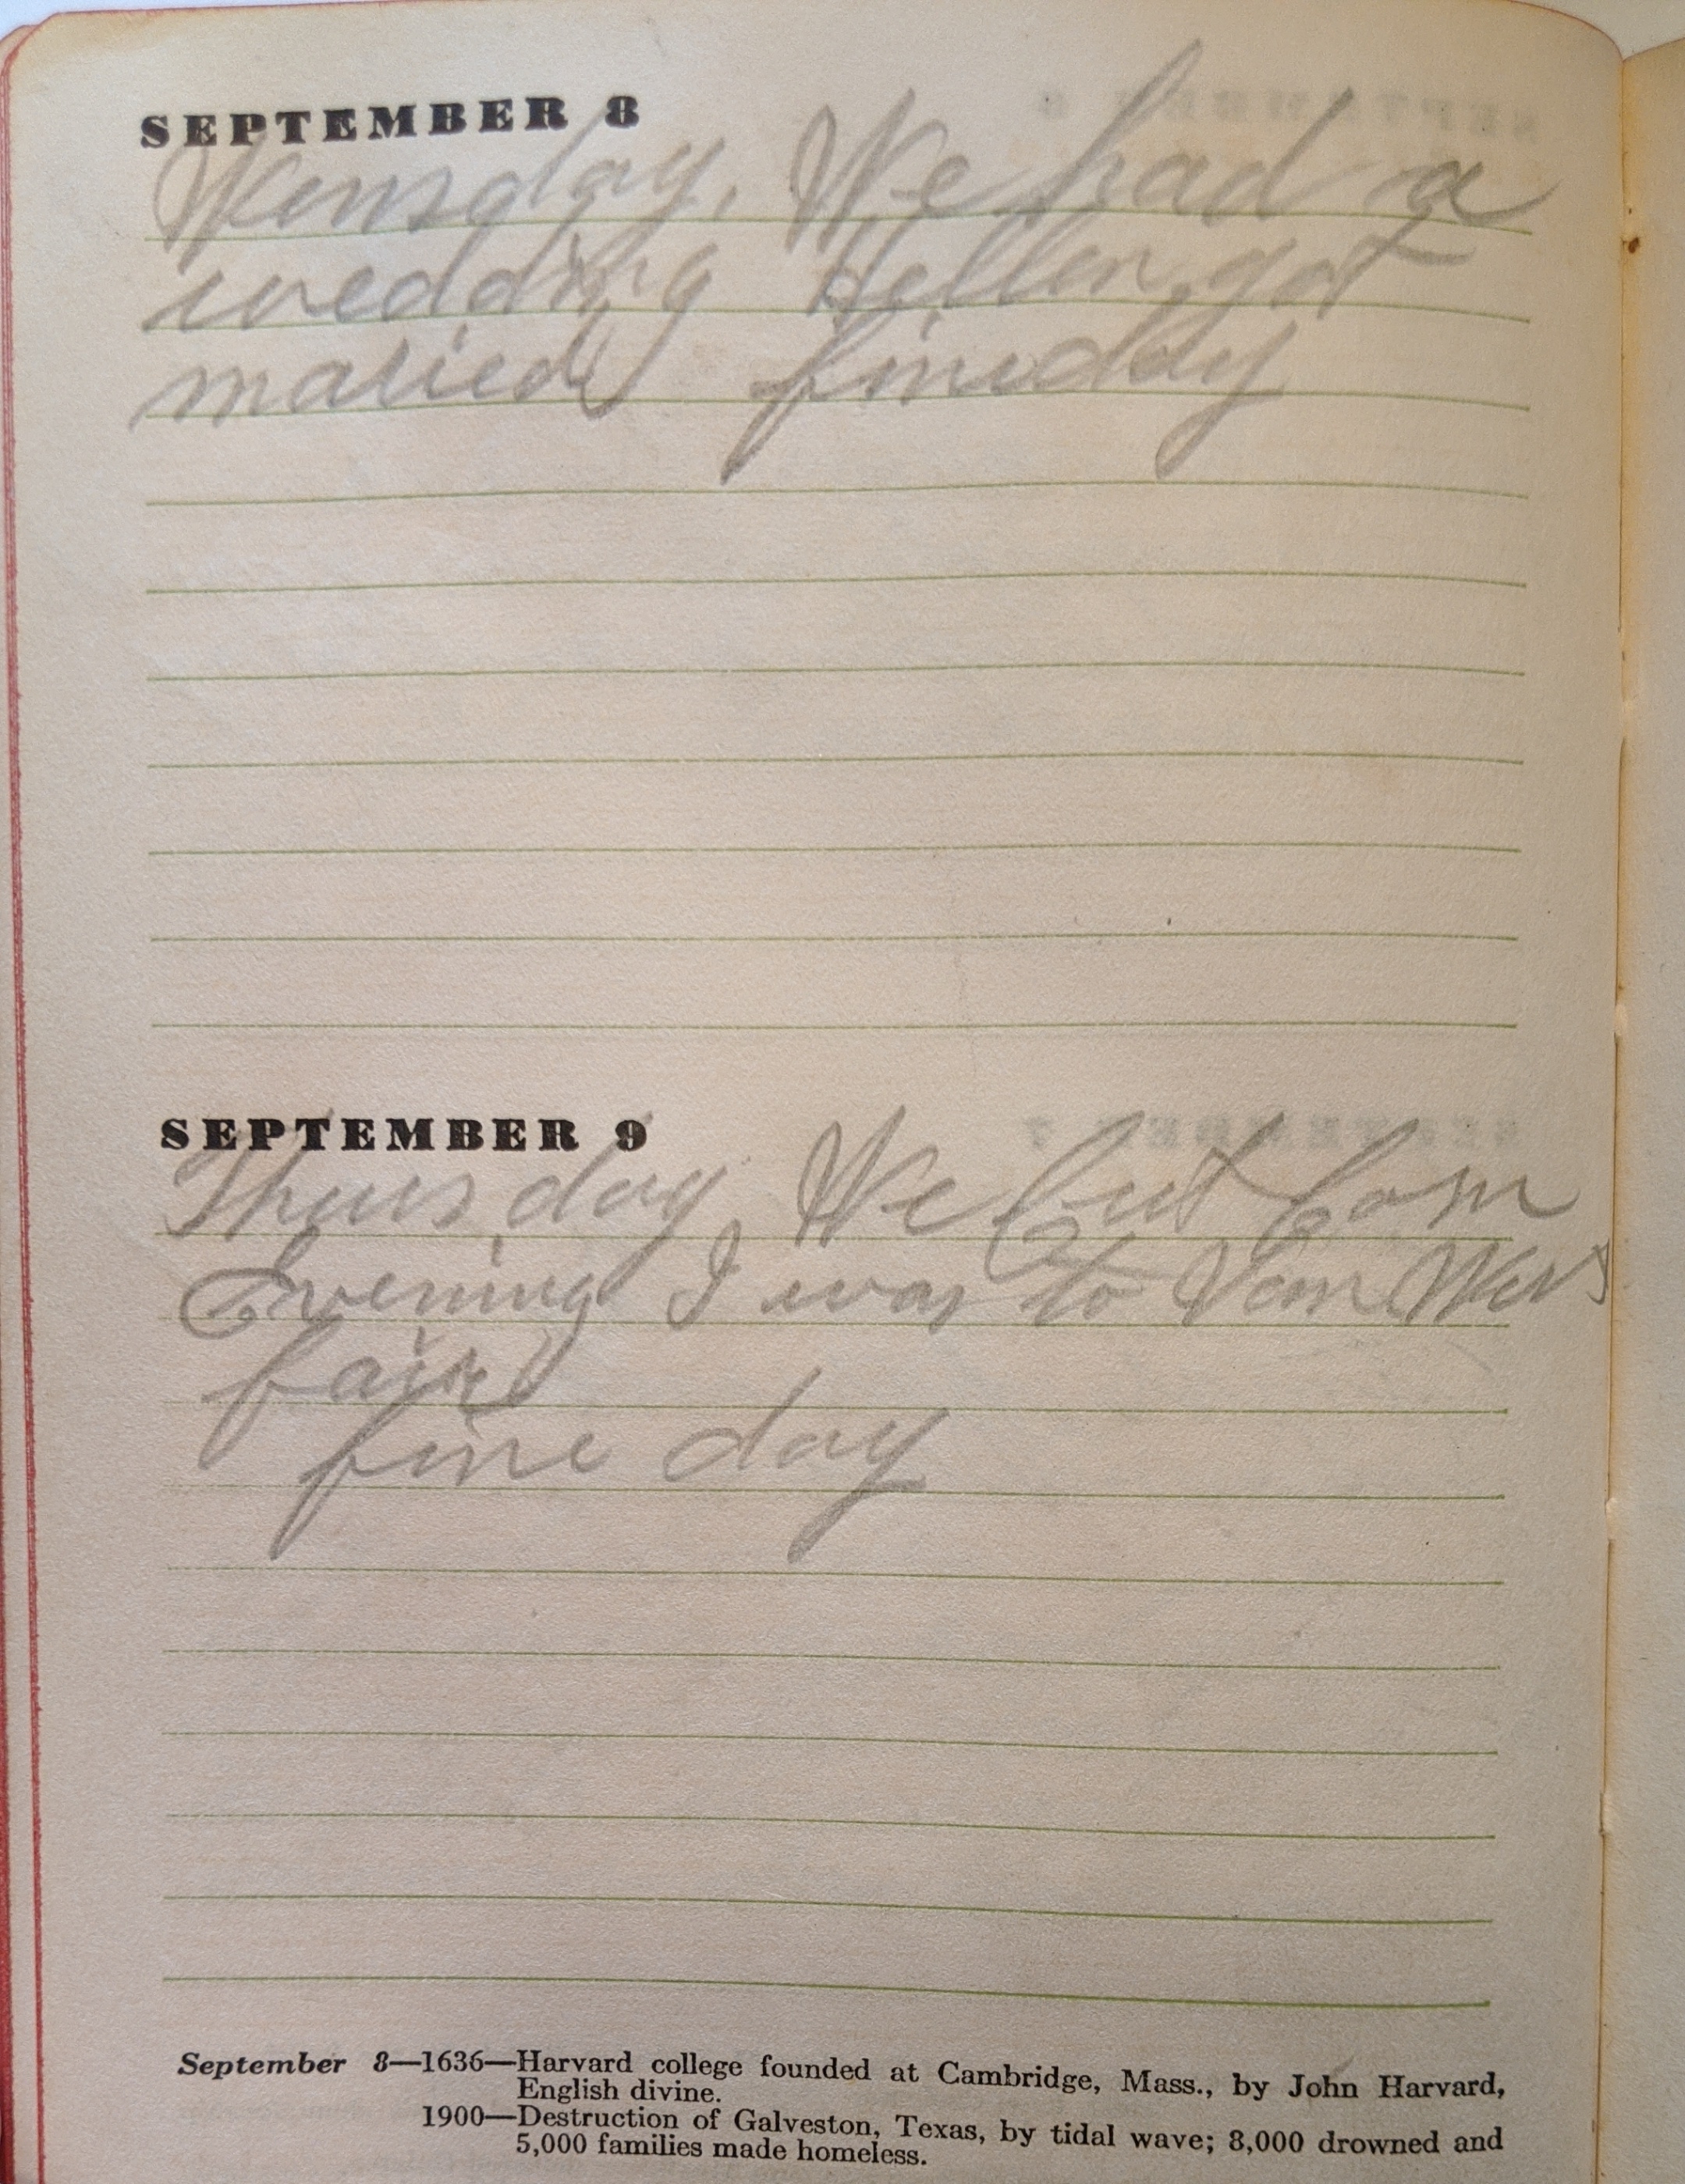 SEPTEMBER 8
Wensday, We had a
wedding Hellen got
maried fine day
SEPTEMBER 9
Thursday We cut corn
Evening I was to Van Wert
fair
fine day
September 8—1636—Harvard college founded at Cambridge, Mass., by John Harvard,
English divine.
1900—Destruction of Galveston, Texas, by tidal wave; 8,000 drowned and
5,000 families made homeless.